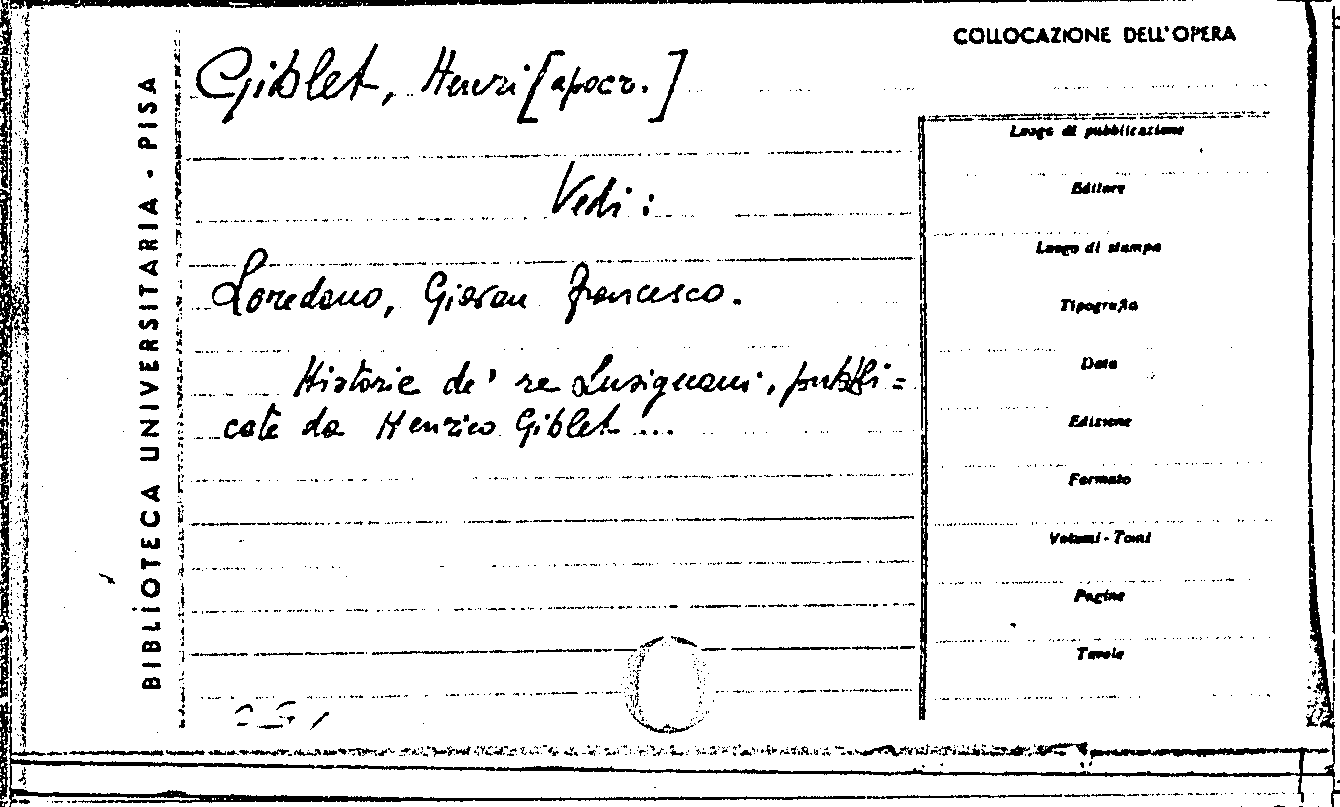 BIBLIOTECA UNIVERSITARIA - PISA
COLLOCAZIONE DELL'OPERA
Giblet, Henri [apocr.]
Vedi:
Loredano, Giovan Francesco.
Historie de' re Lusignani, pubbli=
cate da Henrico Giblet ...
Luogo di pubblicazione
Editore
Luogo di stampa
Tipografia
Data
Edizione
Formato
Volumi - Tomi
Pagine
Tavole